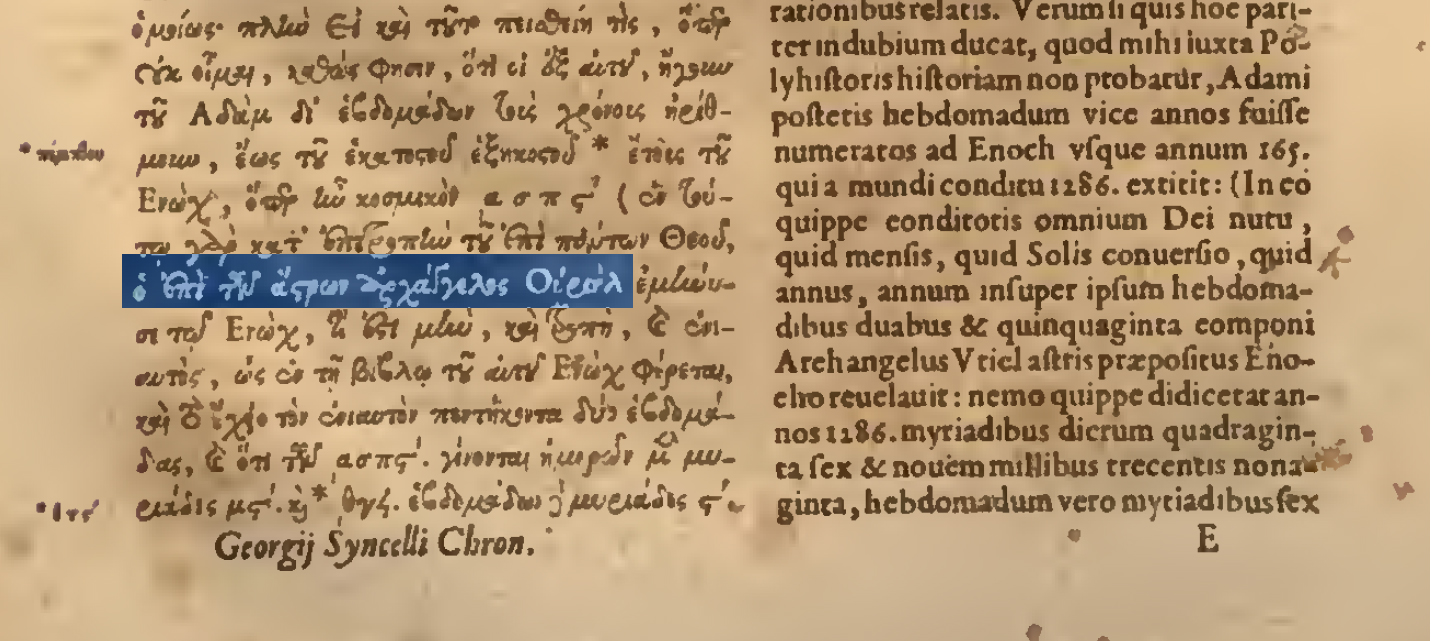 ὁμοίως· πλὴν εἰ καὶ τοῦτο πεισθείη τὶς, ὅπερ
οὐκ οἶμαι, καθώς φησιν, ὅτι οἱ ἐξ αὐτοῦ,
τοῦ Ἀδὰμ δι' ἑβδομάδων τοὺς χρόνους ἠρίθ-
μουν, ἕως τοῦ ἑκατοστοῦ ἑξηκοστοῦ * ἔτους τοῦ
Ενὼχ, ὅπερ ἦν κοσμικὸν α σ π ϛʹ (ἐν τού-
τῳ γὰρ κατ' ἐπιτροπὴν τοῦ ἐπὶ πάντων Θεοῦ,
ὁ ἐπὶ τῶν ἄστρων ἀρχάγγελος Οὐριὴλ ἐμήνυ-
σε τῷ Ενὼχ, τί ἐστι μὴν, καὶ τροπὴ, καὶ ἐνι-
αυτὸς, ὡς ἐν τῇ βίβλῳ τοῦ αὐτοῦ Ενὼχ φέρεται,
καὶ τὸ ἔχειν τὸν ἐνιαυτὸν πεντήκοντα δύο ἑβδομά-
δας, καὶ ὅτι τῶν ασπϛʹ. γίνονται ἡμερῶν μὲν μυ-
ριάδες μϛʹ. καὶ * ἑβδομάδων μυριάδες ϛʹ.
* πέμπτου
Georgij Syncelli Chron.
rationibus relatis. Verum si quis hoc pari-
ter in dubium ducat, quod mihi iuxta Po-
lyhistoris historiam non probatur, Adami
posteris hebdomadum vice annos fuisse
numeratos ad Enoch vsque annum 165.
qui a mundi conditu 1286. extitit: (In eo
quippe conditoris omnium Dei nutu,
quid mensis, quid Solis conuersio, quid
annus, annum insuper ipsum hebdoma-
dibus duabus & quinquaginta componi
Archangelus Vriel astris præpositus Eno-
cho reuelauit: nemo quippe didicerat an-
nos 1286. myriadibus dierum quadragin-
ta sex & nouem millibus trecentis nona-
ginta, hebdomadum vero myriadibus sex
E